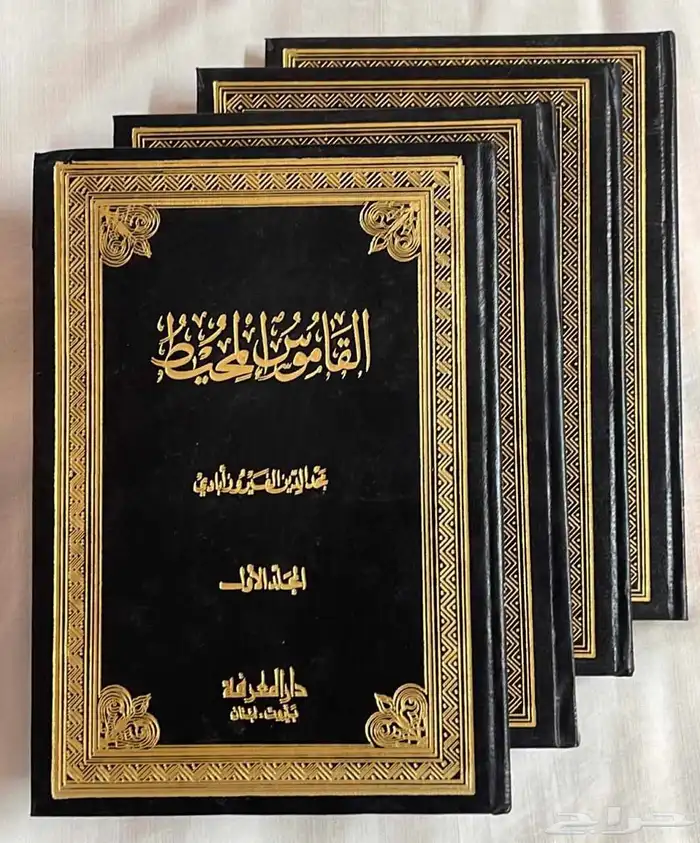 القاموس المحيط
مجد الدين الفيروزأبادي
المجلد الأول
دار المعرفة
بيروت - لبنان
حراج